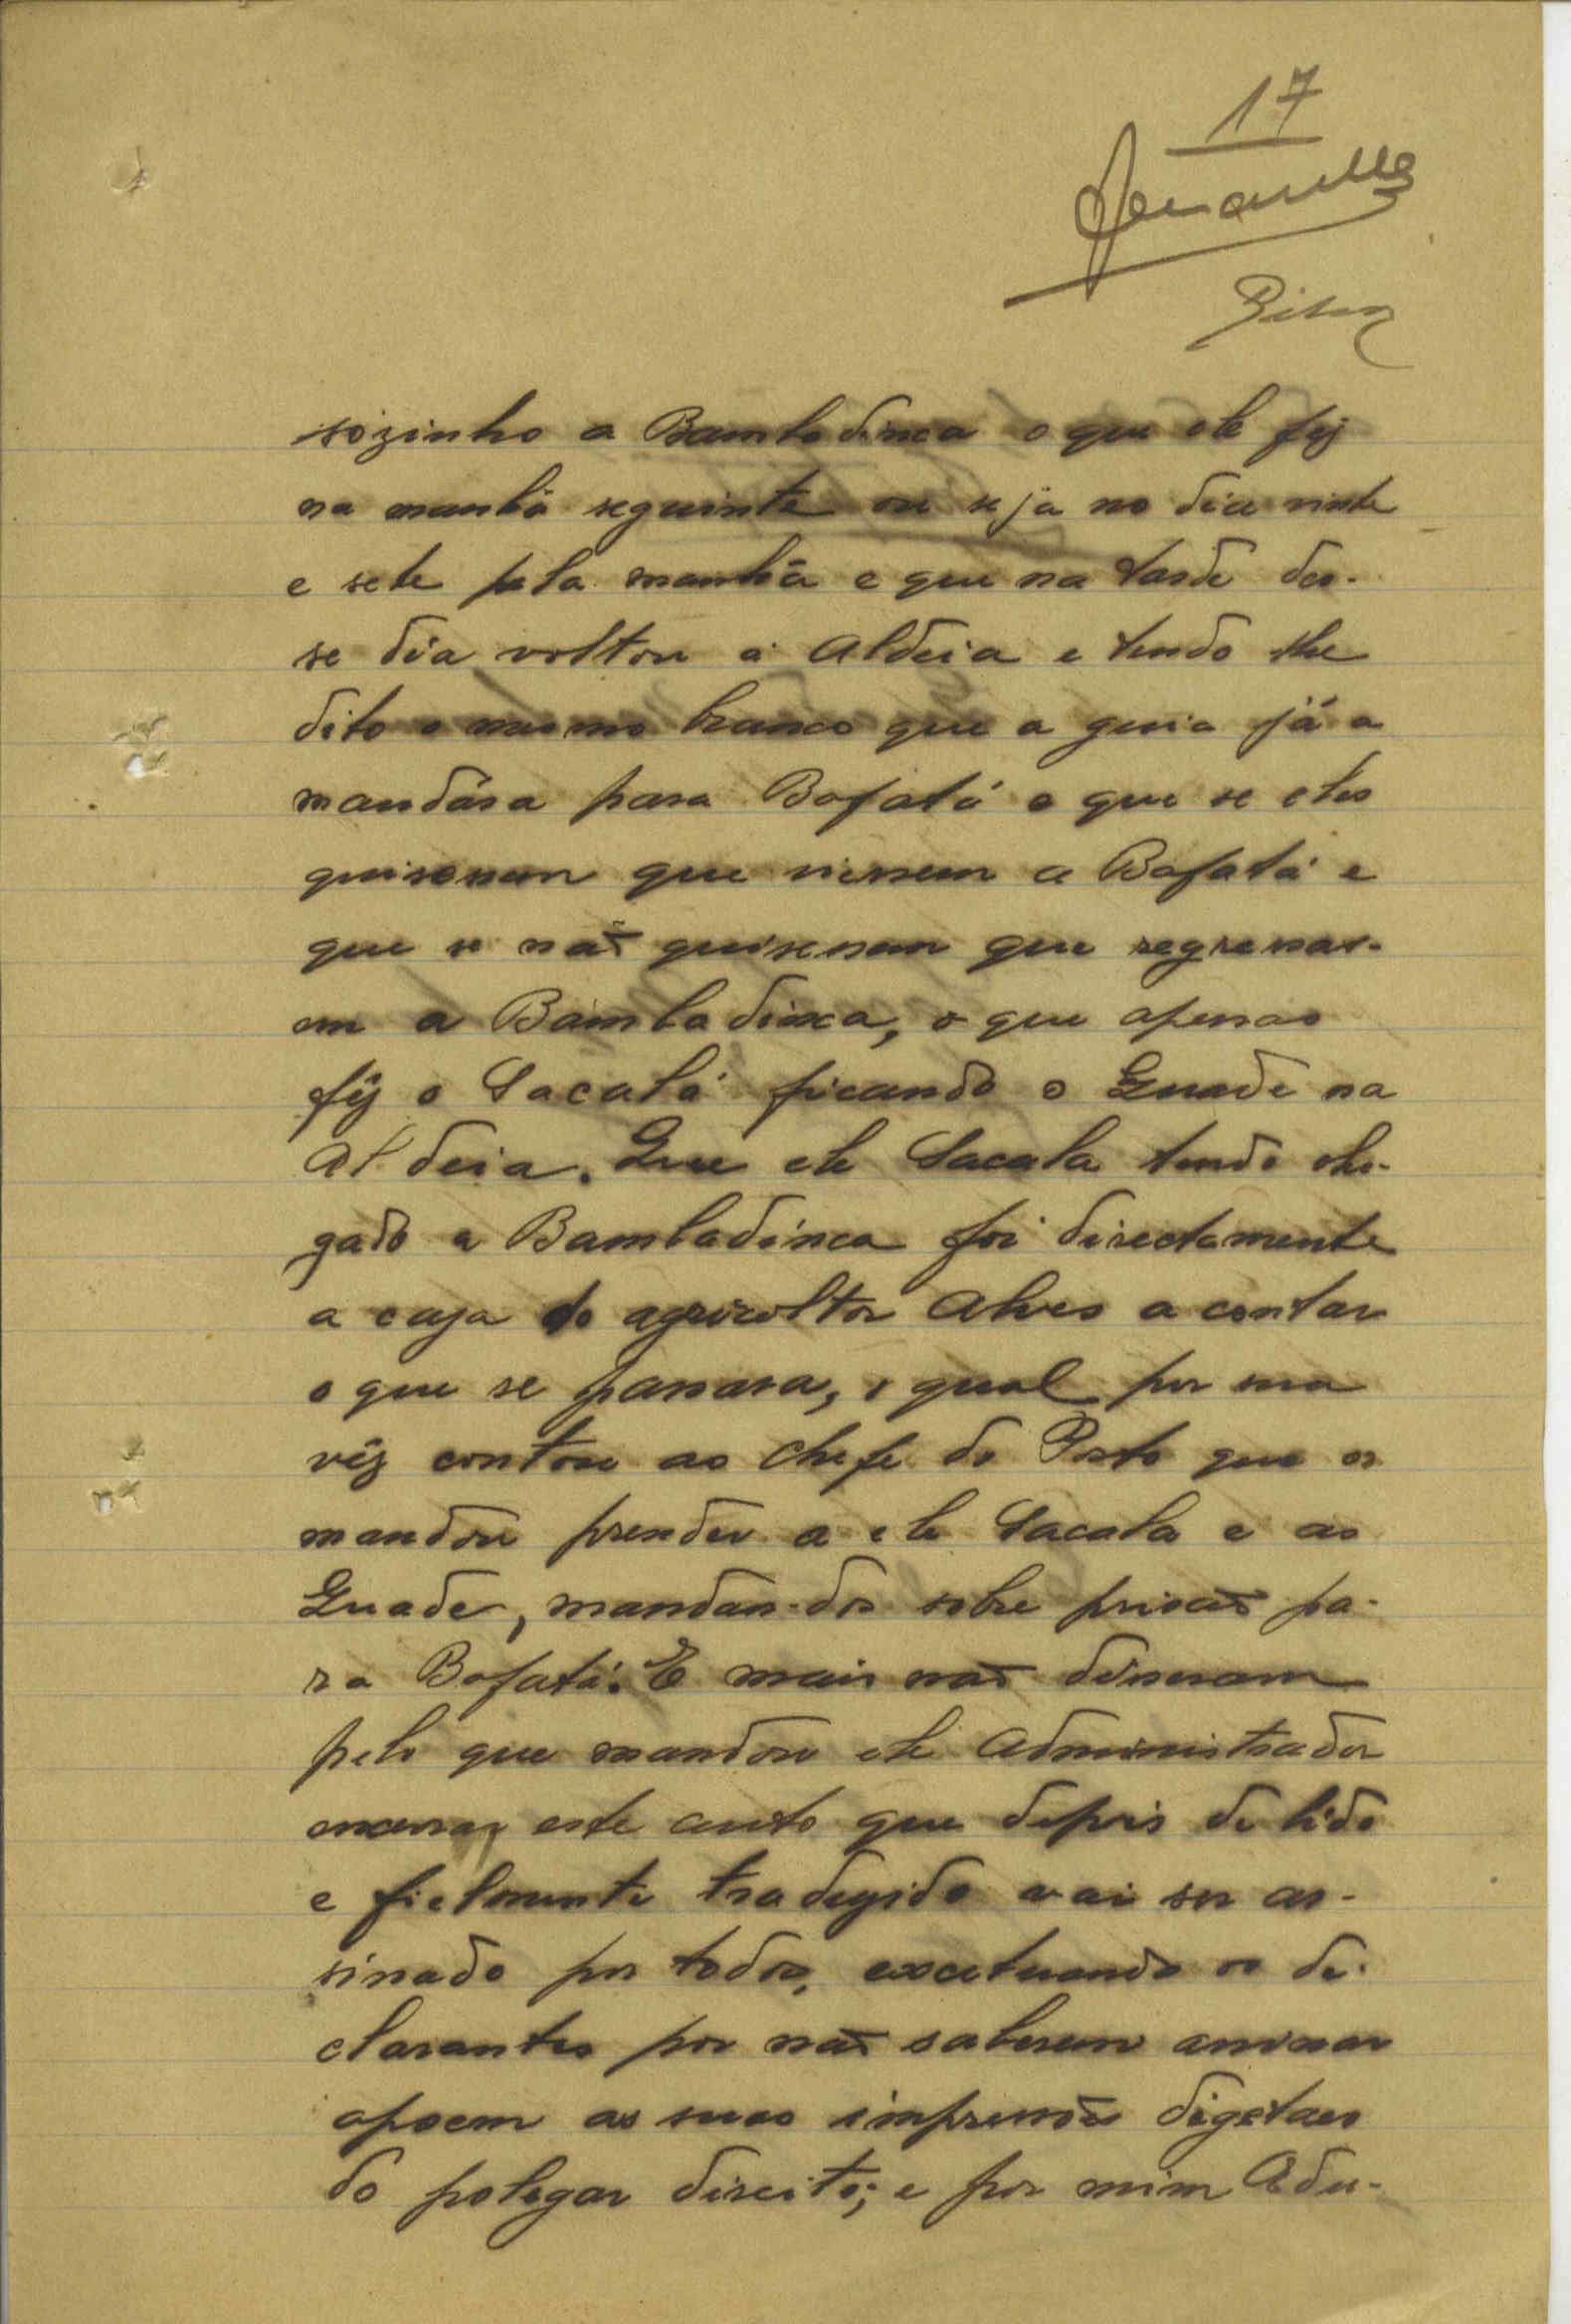 17
sozinho a Bambadinca o que ele fez
na manhã seguinte ou seja no dia vinte
e sete pela manhã e que na tarde des-
se dia voltou á Aldeia e tendo lhe
dito o mesmo branco que a guia já a
mandára para Bafatá e que se eles
quisessem que viessem a Bafatá e
que se não quisessem que regressas-
em a Bambadinca, o que apenas
fêz o Sacalá ficando o Guade na
Aldeia. Que ele Sacala tendo che-
gado a Bambadinca foi directamente
a caza do agricoltor Alves a contar
o que se passara, o qual por sua
vêz contou ao chefe do Posto que os
mandou prender a ele Sacala e ao
Guade, mandan-dos sobre prisão pa-
ra Bafatá. E mais não disseram
pelo que mandou ele Administrador
encerrar este auto que depois de lido
e fielmente tradugido vai ser as-
sinado por todos, excetuando os de-
clarantes por não saberem assinar
apoem as suas impressões digetaes
do polegar direito; e por mim Adu-